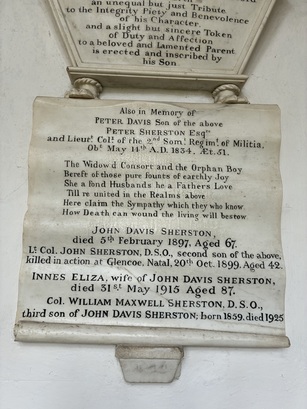 an unequal but just Tribute
to the Integrity Piety and Benevolence
of his Character,
and a slight but sincere Token
of Duty and Affection
to a beloved and lamented Parent
is erected and inscribed by
his Son
Also in Memory of
PETER DAVIS Son of the above
PETER SHERSTON Esqre
and Lieut. Col. of the 2nd Som. Regt. of Militia,
Obt. May 14th A.D. 1834. Æt. 51.
The Widow'd Consort and the Orphan Boy
Bereft of those pure founts of earthly Joy
She a fond Husbands he a Fathers Love
Till re united in the Realms above
Here claim the Sympathy which they who know
How Death can wound the living will bestow
JOHN DAVIS SHERSTON,
died 5th February 1897, Aged 67.
Lt. Col. JOHN SHERSTON, D.S.O., second son of the above,
killed in action at Glencoe, Natal, 20th Oct. 1899. Aged 42.
INNES ELIZA, wife of JOHN DAVIS SHERSTON,
died 31st May 1915 Aged 87.
Col. WILLIAM MAXWELL SHERSTON, D.S.O.,
third son of JOHN DAVIS SHERSTON; born 1859. died 1925